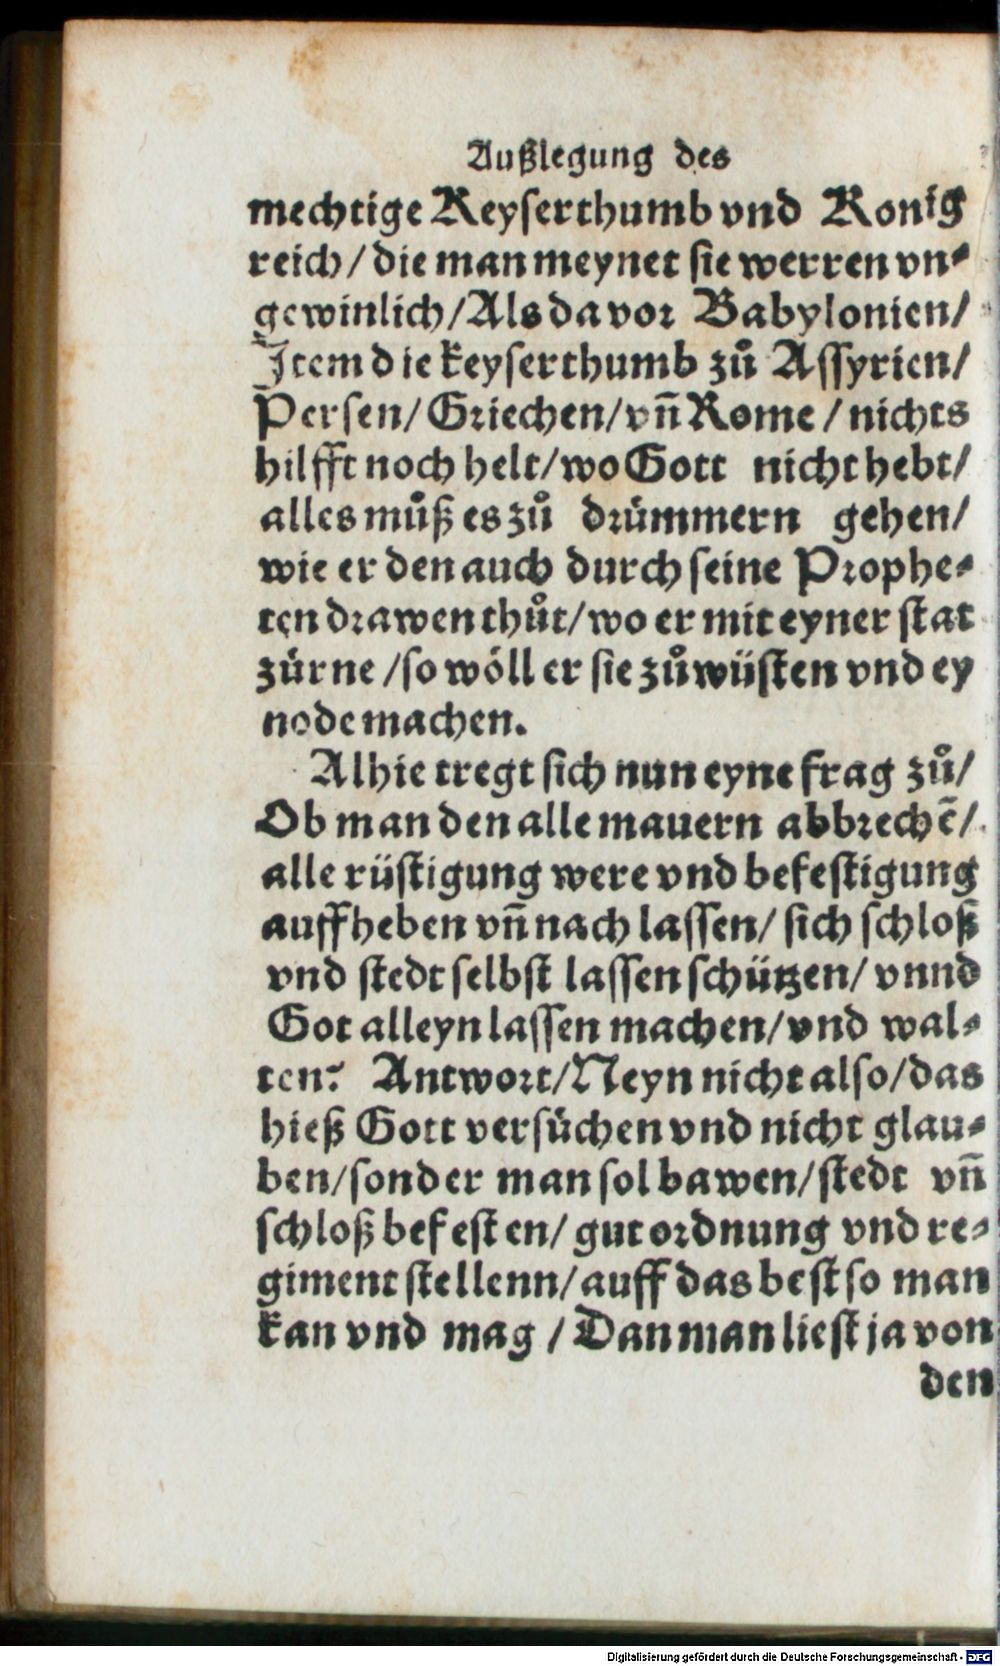 Außlegung des
mechtige Keyserthumb vnd Konig
reich / die man meynet sie werren vn⸗
gewinlich / Als da vor Babylonien /
Item die keyserthumb zuͦ Assyrien /
Persen / Griechen / vñ Rome / nichts
hilfft noch helt / wo Gott nicht hebt /
alles muͦß es zuͦ drümmern gehen /
wie er den auch durch seine Prophe⸗
ten drawen thuͦt / wo er mit eyner stat
zürne / so wöll er sie zuͦwüsten vnd ey
node machen.
Alhie tregt sich nun eyne frag zuͦ /
Ob man den alle mauern abbrechẽ /
alle rüstigung were vnd befestigung
auffheben vñ nach lassen / sich schloß
vnd stedt selbst lassen schützen / vnnd
Got alleyn lassen machen / vnd wal⸗
ten? Antwort / Neyn nicht also / das
hieß Gott versüchen vnd nicht glau⸗
ben / sonder man sol bawen / stedt vñ
schloß befesten / gut ordnung vnd re⸗
giment stellenn / auff das best so man
kan vnd mag / Dan man liest ja von
den
Digitalisierung gefördert durch die Deutsche Forschungsgemeinschaft - DFG